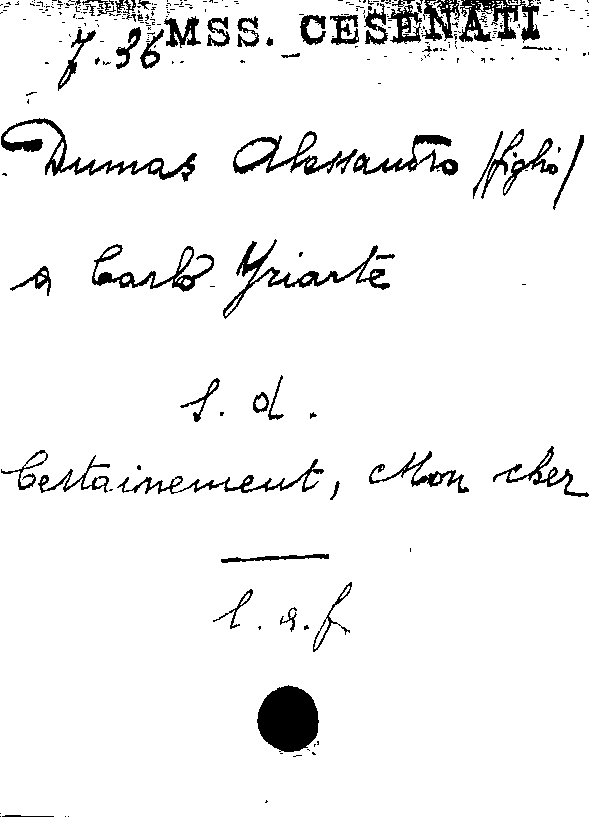 7.36 MSS. CESENATI
Dumas Alessandro (figlio)
a Carlo Yriarte
s. d.
Certainement, Mon cher
l. a. f.